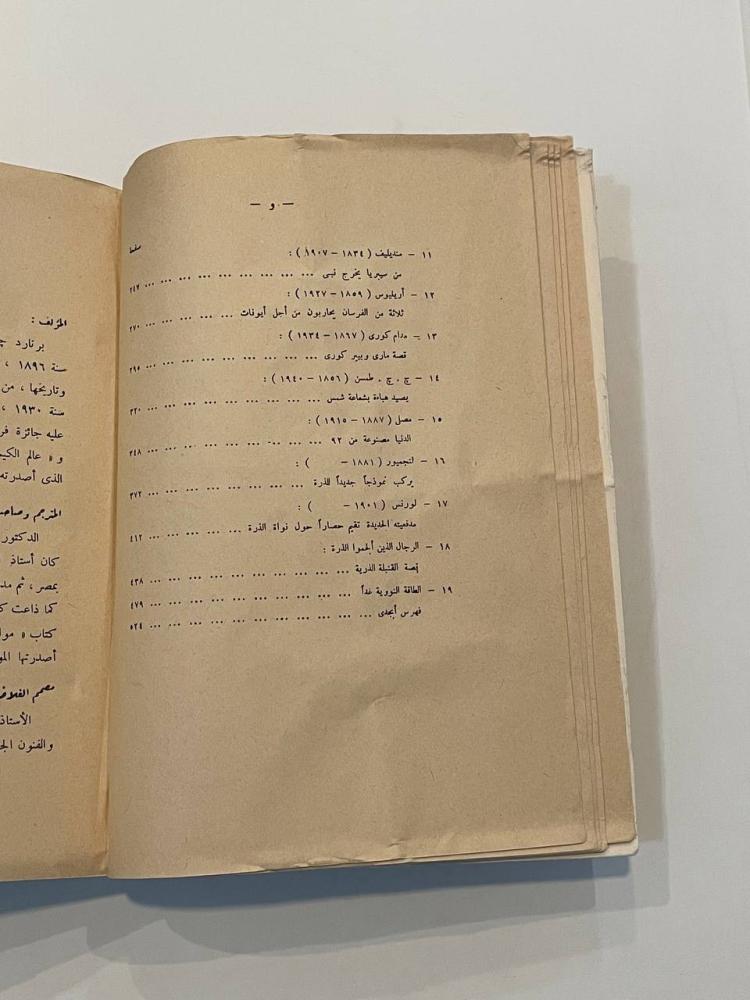 — و —
صفحة
١١ – منديليف ( ١٨٣٤ – ١٩٠٧ ) :
من سيبريا يخرج نبى ... ... ... ... ... ... ... ... ٢٤٧
١٢ – أرينيوس ( ١٨٥٩ – ١٩٢٧ ) :
ثلاثة من الفرسان يحاربون من أجل أيونات ... ... ... ... ٢٧٠
١٣ – مدام كورى ( ١٨٦٧ – ١٩٣٤ ) :
قصة مارى وبيير كورى ... ... ... ... ... ... ... ... ٢٩٥
١٤ – ج . ج . طمسن ( ١٨٥٦ – ١٩٤٠ ) :
يصيد هباءة بشعاعة شمس ... ... ... ... ... ... ... ... ٣٢٠
١٥ – مصلى ( ١٨٨٧ – ١٩١٥ ) :
الدنيا مصنوعة من ٩٢ ... ... ... ... ... ... ... ٣٤٨
١٦ – لنجميور ( ١٨٨١ – ) :
يركب نموذجاً جديداً للذرة ... ... ... ... ... ... ... ٣٧٢
١٧ – لورنس ( ١٩٠١ – ) :
مدفعيته الجديدة تقيم حصاراً حول نواة الذرة ... ... ... ... ٤١٢
١٨ – الرجال الذين ألجموا الذرة :
قصة القنبلة الذرية ... ... ... ... ... ... ... ... ... ٤٣٨
١٩ – الطاقة النووية غداً ... ... ... ... ... ... ... ... ... ٤٧٩
فهرس أبجدى ... ... ... ... ... ... ... ... ... ... ٥٢٤
المؤلف :
برنارد
سنة ١٨٩٦ ،
وتاريخها ، من
سنة ١٩٣٠ ،
عليه جائزة
و « عالم
الذى أصدرته
المترجم
الدكتور
كان أستاذ
بمصر ، ثم
كما ذاعت
كتاب «
أصدرتها
مصمم الغلاف
الأستاذ
والفنون